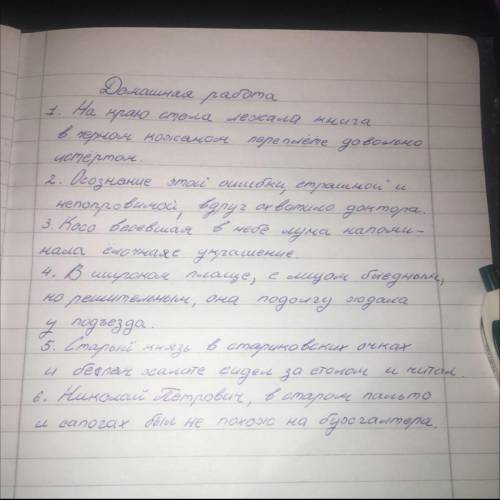 Домашняя работа
1. На краю стола лежала книга
в черном кожаном переплёте довольно
истертом.
2. Осознание этой ошибки, страшной и
непоправимой, вдруг охватило доктора.
3. Косо висевшая в небе луна напоми-
нала елочная с украшение.
4. В широком плаще, с лицом бледным,
но решительным, она подолгу ждала
у подъезда.
5. Старый князь в стариковских очках
и белом халате сидел за столом и читал.
6. Николай Петрович, в старом пальто
и сапогах был не похож на бухгалтера.